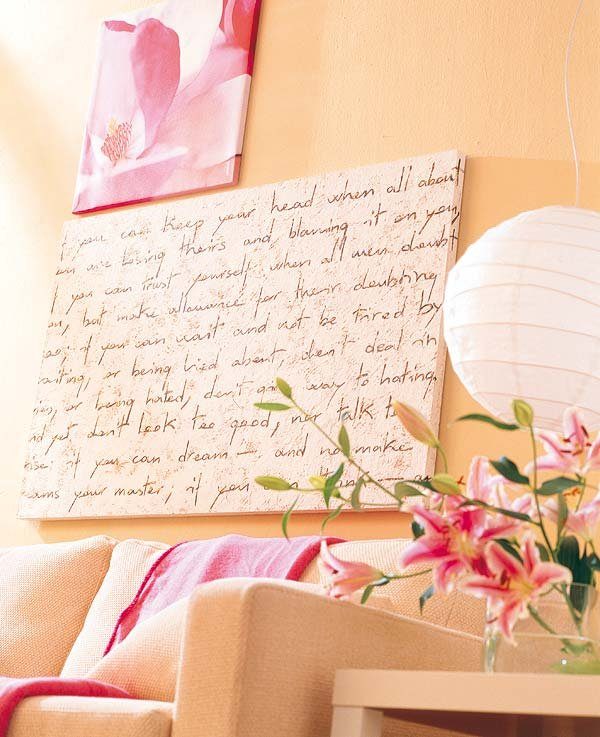 you can keep your head when all about
are losing theirs and blaming it on you,
you can trust yourself when all men doubt
but make allowance for their doubting
if you can wait and not be tired by
waiting, or being lied about, don't deal in
or being hated, don't give way to hating,
yet don't look too good, nor talk to
if you can dream — and not make
your master, if you can